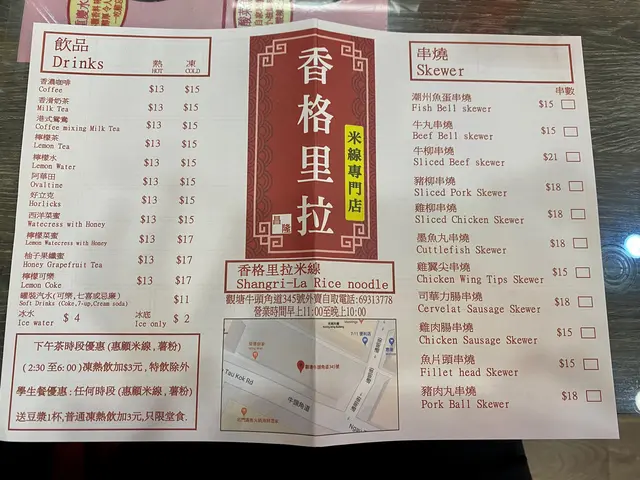 飲品
Drinks
熱
HOT
凍
COLD
香濃咖啡
Coffee
$13 $15
香滑奶茶
Milk Tea
$13 $15
港式鴛鴦
Coffee mixing Milk Tea
$13 $15
檸檬茶
Lemon Tea
$13 $15
檸檬水
Lemon Water
$13 $15
阿華田
Ovaltine
$13 $15
好立克
Horlicks
$13 $15
西洋菜蜜
Watecress with Honey
$13 $15
檸檬菜蜜
Lemon Watecress with Honey
$13 $17
柚子果纖蜜
Honey Grapefruit Tea
$13 $17
檸檬可樂
Lemon Coke
$13 $17
罐裝汽水(可樂,七喜或忌廉)
Soft Drinks (Coke,7-up,Cream soda)
$11
冰水
Ice water
$ 4
冰底
Ice only
$ 2
下午茶時段優惠 (惠顧米線,薯粉)
(2:30 至6:00)凍熱飲加$3元,特飲除外
學生餐優惠:任何時段 (惠顧米線,薯粉)
送豆漿1杯,普通凍熱飲加3元,只限堂食.
香格里拉
米線專門店
昌隆
香格里拉米線
Shangri-La Rice noodle
觀塘牛頭角道345號外賣自取電話:69313778
營業時間早上11:00至晚上10:00
Tau Kok Rd
牛頭角道
觀塘牛頭角道345號
串燒
Skewer
串數
潮州魚蛋串燒
Fish Bell skewer
$15
牛丸串燒
Beef Bell skewer
$15
牛柳串燒
Sliced Beef skewer
$21
豬柳串燒
Sliced Pork Skewer
$18
雞柳串燒
Sliced Chicken Skewer
$18
墨魚丸串燒
Cuttlefish Skewer
$18
雞翼尖串燒
Chicken Wing Tips Skewer
$15
司華力腸串燒
Cervelat Sausage Skewer
$18
雞肉腸串燒
Chicken Sausage Skewer
$15
魚片頭串燒
Fillet head Skewer
$15
豬肉丸串燒
Pork Ball Skewer
$18